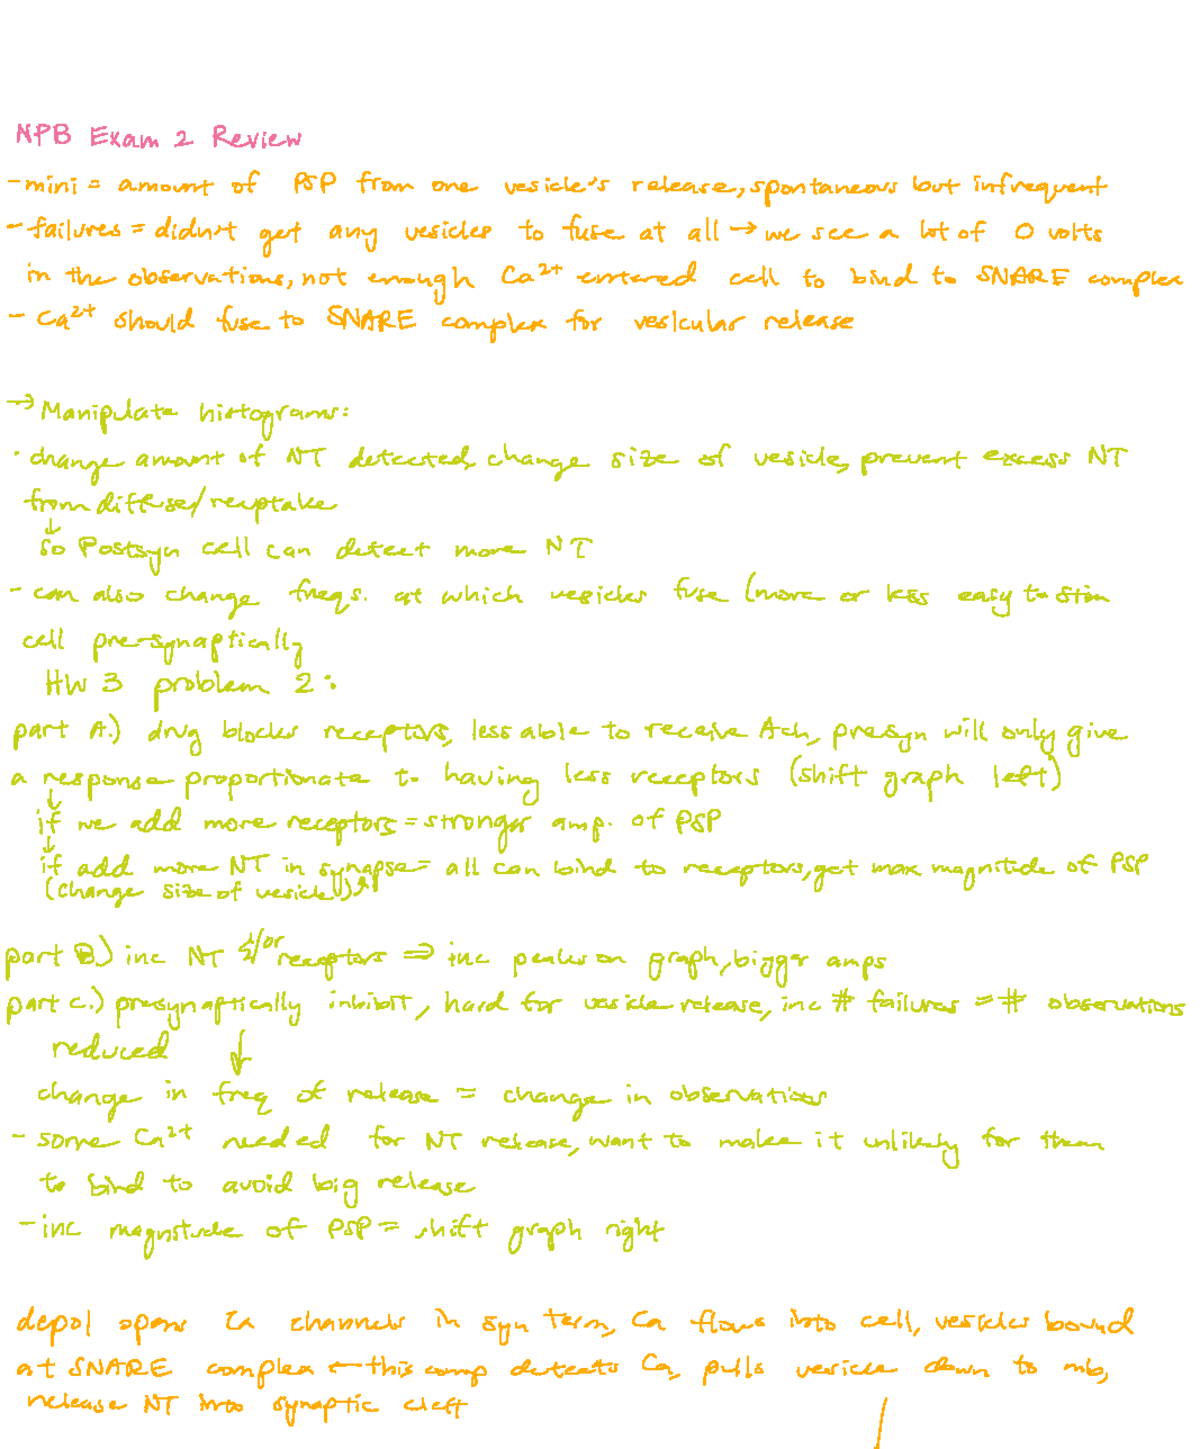 NPB Exam 2 Review
- mini = amount of PSP from one vesicle's release, spontaneous but infrequent
- failures = didn't get any vesicles to fuse at all → we see a lot of 0 volts
in the observations, not enough Ca²⁺ entered cell to bind to SNARE complex
- Ca²⁺ should fuse to SNARE complex for vesicular release
→ Manipulate histograms:
· change amount of NT detected, change size of vesicle, prevent excess NT
from diffuse/reuptake
↓
so Postsyn cell can detect more NT
- can also change freqs. at which vesicles fuse (more or less easy to stim
cell pre-synaptically
HW 3 problem 2:
part A.) drug blocks receptors, less able to receive Ach, presyn will only give
a response proportionate to having less receptors (shift graph left)
↓
if we add more receptors = stronger amp. of PSP
↓
if add more NT in synapse = all can bind to receptors, get max magnitude of PSP
(change size of vesicle)
part B.) inc NT &/or receptors ⇒ inc peaks on graph, bigger amps
part c.) presynaptically inhibit, hard for vesicle release, inc # failures = # observations
reduced ↓
change in freq of release = change in observations
- some Ca²⁺ needed for NT release, want to make it unlikely for them
to bind to avoid big release
- inc magnitude of PSP = shift graph right
depol opens Ca channels in syn term, Ca flows into cell, vesicles bound
at SNARE complex ← this comp detects Ca, pulls vesicle down to mb,
release NT into synaptic cleft